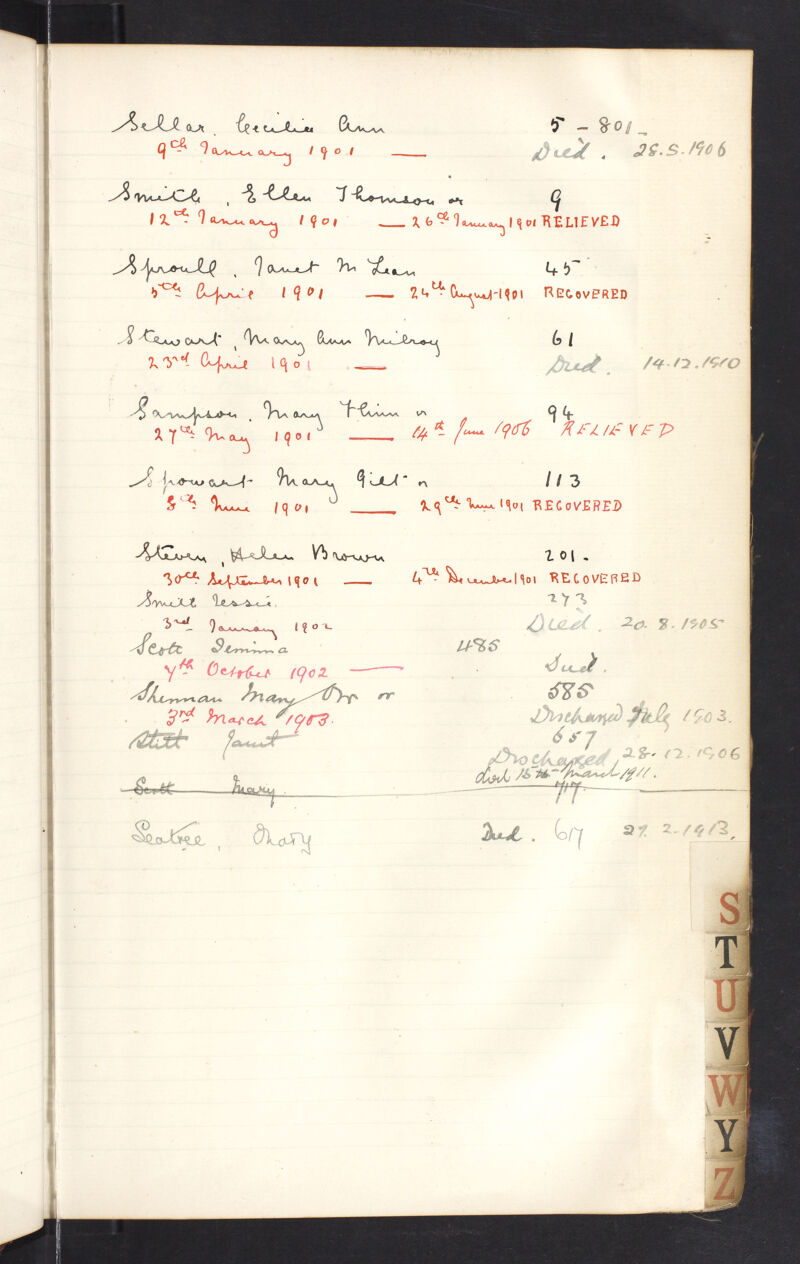 Sellar, Cecilia Ann 5 - 801 -
9th January 1901 — Died. 28.5.1906
Smith, Ellen Thomson or 9
12th January 1901 — 26th January 1901 RELIEVED
Sproull, Janet McLean 45
5th April 1901 — 24th August 1901 RECOVERED
Stewart, Mary Ann Milroy 61
23rd April 1901 — Died. 14.12.1910
Sampson, Mary Thinn or 94
27th May 1901 — 14th June 1906 RELIEVED
Spowart Mary Gilt or 113
8th June 1901 — 29th June 1901 RECOVERED
Steven, Helen Brown 201-
30th September 1901 — 4th December 1901 RECOVERED
Smith Jessie. 273
3rd January 1902 Died. 20.8.1905
Scott Jemima 485
7th October 1902 — Died.
Shennan Mary Orr or 585
3rd March 1903. Discharged July 1903.
Stitt Janet 657
Discharged 28.12.1906
died 15th March 1911.
Scott Mary. 717
Seatree, Mary Died. 617 27.2.1913.
S
T
U
V
W
Y
Z